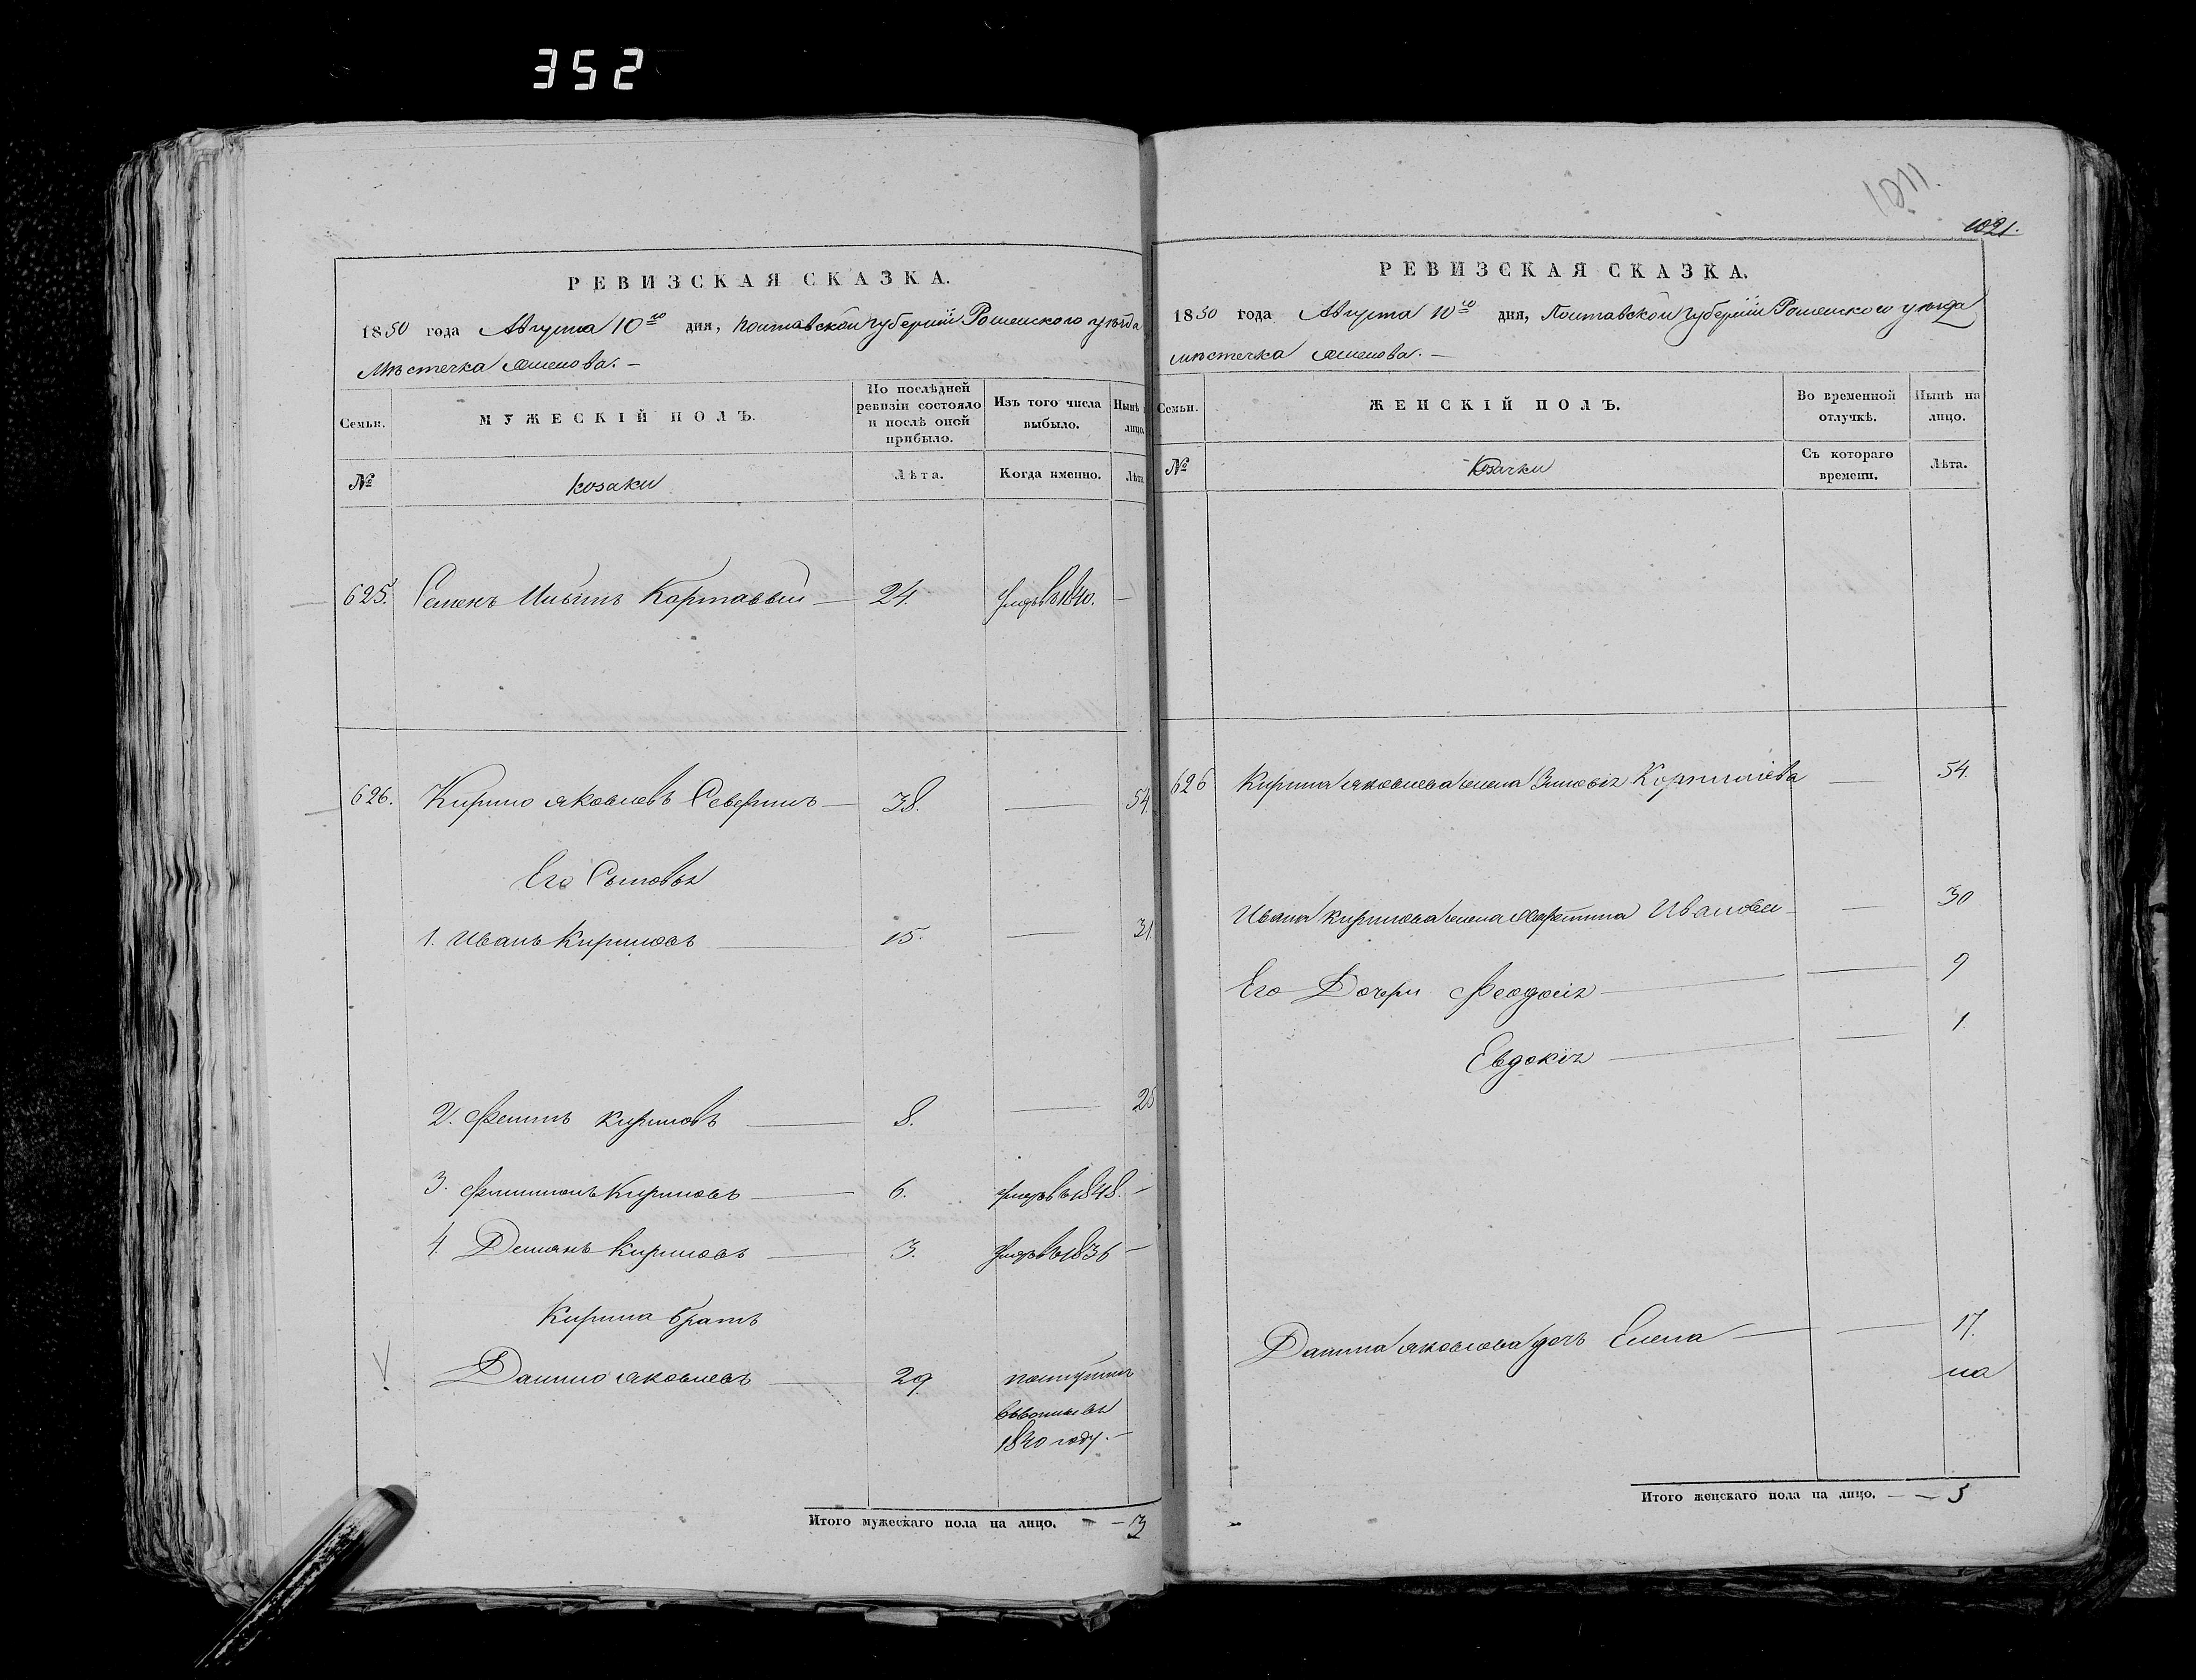 352
РЕВИЗСКАЯ СКАЗКА.
1850 года Августа 10го дня, Полтавской Губерніи Роменского уѣзда
Мѣстечка
Семьи.
МУЖЕСКІЙ ПОЛЪ.
По послѣдней ревизіи состояло и послѣ оной прибыло.
Изъ того числа выбыло.
Нынѣ
лицо.
№
козаки
Лѣта.
Когда именно.
Лѣта.
625. Семенъ Картавый 24. умръ въ 1840. —
626. Кирило Яковлевъ 38. — 54
Его Сыновья
1. Иванъ Кириловъ 15. — 31.
2. Кириловъ 8. —
3. Кириловъ 6. умръ въ 1848. —
4. Демянъ Кириловъ 3. умръ въ 1836 —
Кирила братъ
Данило Яковлевъ 29
1840 году. —
Итого мужескаго пола на лицо. — 3
1011.
1021.
РЕВИЗСКАЯ СКАЗКА.
1850 года Августа 10го дня, Полтавской Губерніи Роменского уѣзда
мѣстечка
Семьи.
ЖЕНСКІЙ ПОЛЪ.
Во временной отлучкѣ.
Нынѣ на лицо.
№
Козачки
Съ котораго времени.
Лѣта.
626 Кирила Яковлева жена Зиновія — 54.
Ивана Кирилова жена — 30
Его Дочери Феодосія — 9
Евдокія — 1
Данила Яковлева дочь Елена — 17.
на
Итого женскаго пола на лицо. — 5